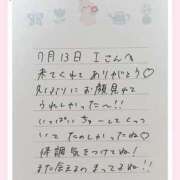 7月13日 Iさんへ
来てくれてありがとう♡
久しぶりにお顔見れて
うれしかったー!!
いっぱいちゅーしてくっつ
いてたのしかったね♡
体調気をつけてね!
また会えるのまってるね!!